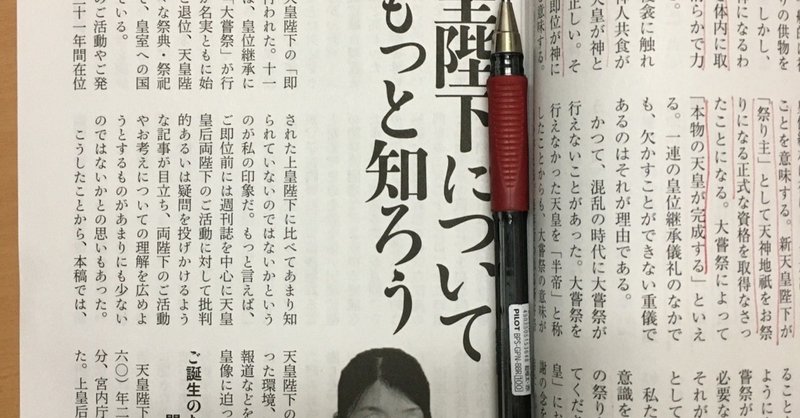 の供物を
しかし、
神になるわ
体内に取
らかで力
に触れ
人共食が
天皇が神と
正しい。そ
即位が神に
意味する。
ことを意味する。新天皇陛下が
「祭り主」として天神地祇をお祭
りになる正式な資格を取得なさっ
たことになる。大嘗祭によって
「本物の天皇が完成する」といえ
る。一連の皇位継承儀礼のなかで
も、欠かすことができない重儀で
あるのはそれが理由である。
かつて、混乱の時代に大嘗祭が
行えないことがあった。大嘗祭を
行えなかった天皇を「半帝」と称
したことからも、大嘗祭の意味が
ることを
嘗祭が
必要な
として
私た
意識
の祭り
てくだ
皇」にお
謝の念を
皇陛下について
もっと知ろう
天皇陛下の「即
行われた。十一
は、皇位継承に
「大嘗祭」が行
が名実ともに始
ご退位、天皇陛
な祭典・祭祀
そ、皇室への国
ている。
のご活動やご発
二十一年間在位
された上皇陛下に比べてあまり知
られていないのではないかという
のが私の印象だ。もっと言えば、
ご即位前には週刊誌を中心に天皇
皇后両陛下のご活動に対して批判
的あるいは疑問を投げかけるよう
な記事が目立ち、両陛下のご活動
やお考えについての理解を広めよ
うとするものがあまりにも少ない
のではないかとの思いもあった。
こうしたことから、本稿では、
天皇陛下の
った環境、
報道などを
皇像に迫っ
ご誕生の
天皇陛下
六〇）年二
分、宮内庁
た。上皇后
PILOT
BPS-GFN-BBR(100)